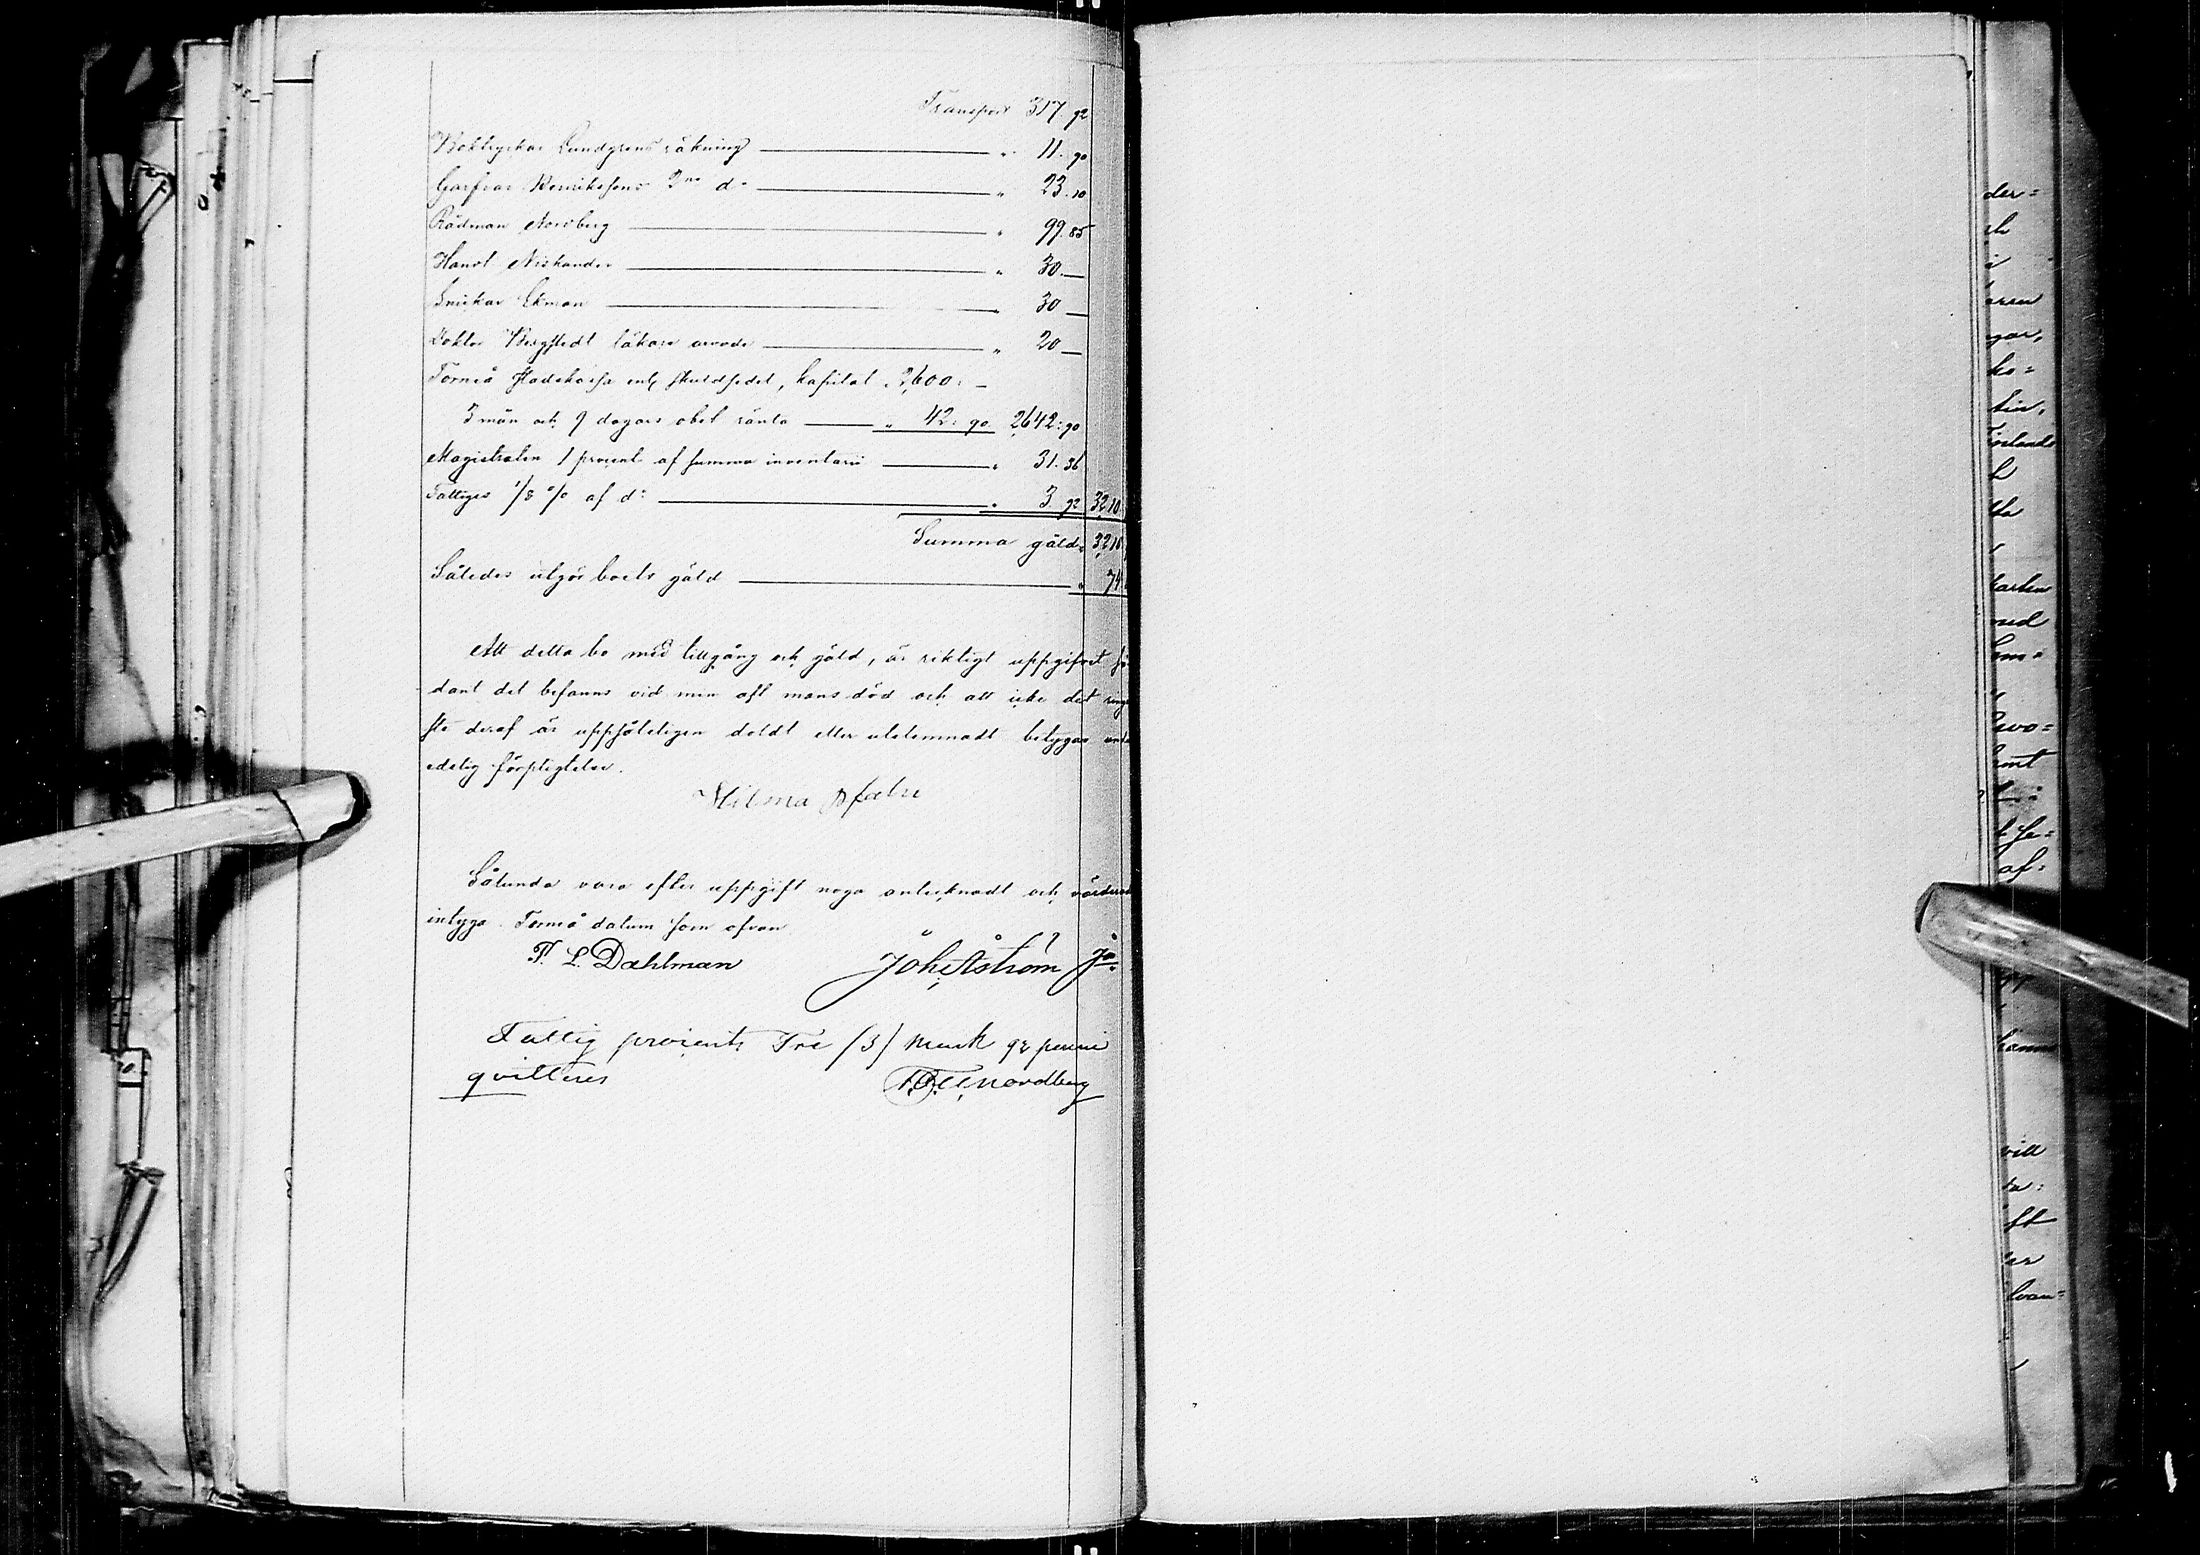 Transport 317. 92
Boktryckar Lundgrens räkning " 11. 90
Garfvar Henrikssons 2ne do " 23. 10
Rådman Nordberg " 99. 85
Handl Niskander " 30. —
Snickar Ekman " 30 —
Doktor Bergstedt läkare arvode " 20 —
Torneå Stadskassa enl skuldsedel, kapital " 2,600: —
3 mån och 9 dagars obet ränta " 42: 90 2,642: 90
Magistraten 1 procent af summa inventarii " 31. 36
Fattiges 1/8 % af do " 3. 92 3210
Summa gäld 3,210
Således utgör boets gäld " 74
Att detta bo med tillgång och gäld, är riktigt uppgifvet så
dant det befanns vid min afl mans död och att icke det ring
ste deraf är uppsåteligen doldt eller utelemnadt betygar unde
edelig förpligtelse.
Hilma
Sålunda vara efter uppgift noga antecknadt och värderad
intyga. Torneå datum som ofvan
F. L. Dahlman Joh Åström Jo
Fattig procents Tre (3) mark 92 penni
qvitteres Nordberg
der=
gar,
ko=
tin,
med
af=
vill
ft